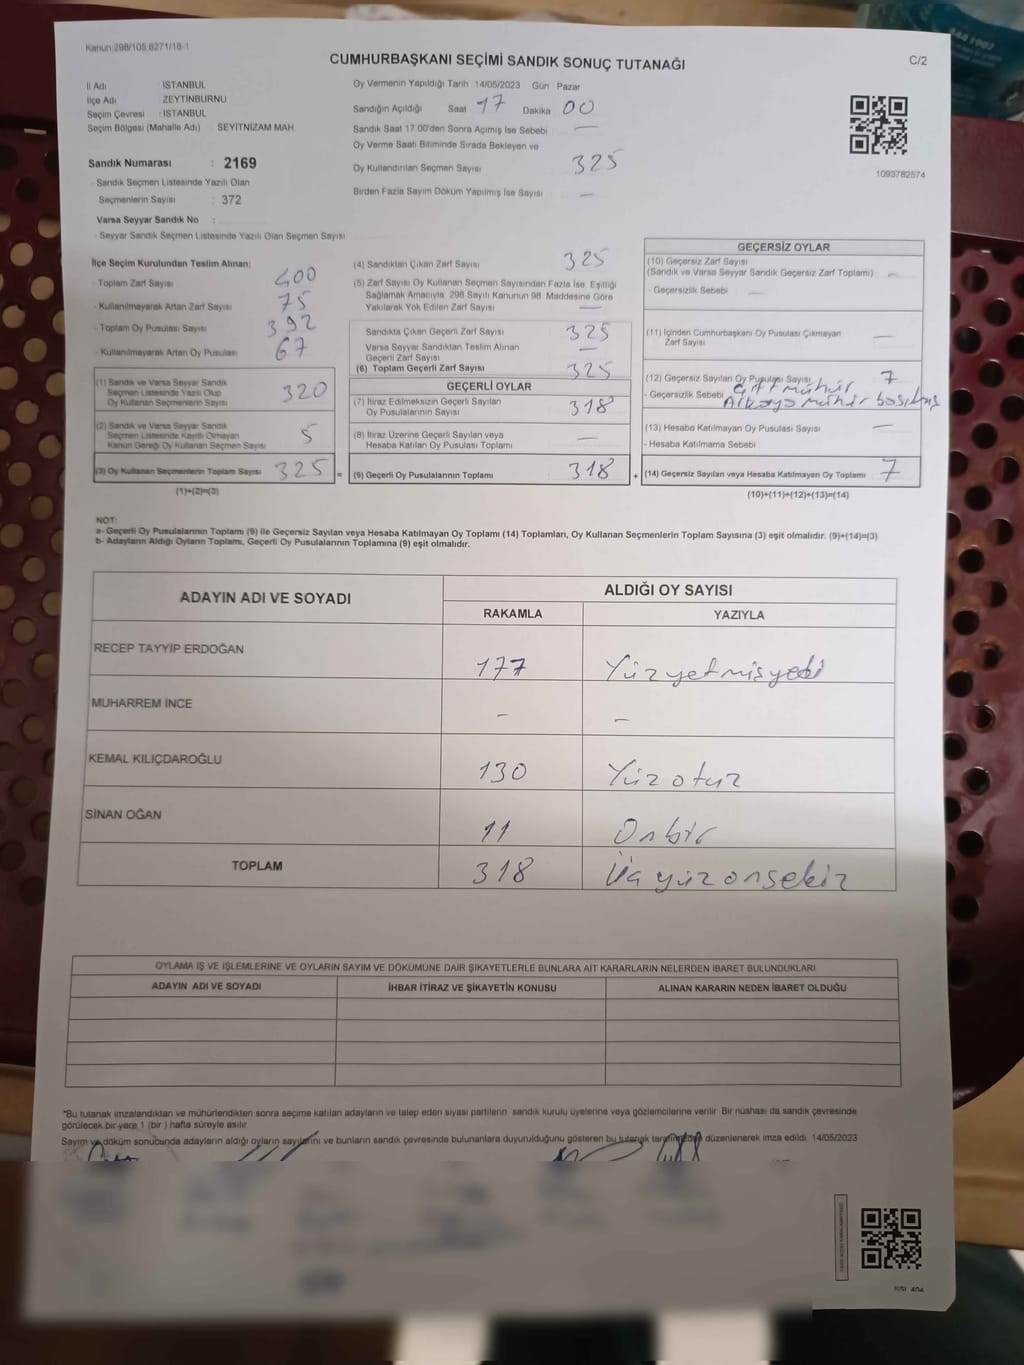 Kanun:298/105.6271/18-1
CUMHURBAŞKANI SEÇİMİ SANDIK SONUÇ TUTANAĞI
C/2
İl Adı : İSTANBUL
İlçe Adı : ZEYTİNBURNU
Seçim Çevresi : İSTANBUL
Seçim Bölgesi (Mahalle Adı) : SEYİTNİZAM MAH
Sandık Numarası : 2169
- Sandık Seçmen Listesinde Yazılı Olan
Seçmenlerin Sayısı : 372
Varsa Seyyar Sandık No :
- Seyyar Sandık Seçmen Listesinde Yazılı Olan Seçmen Sayısı
Oy Vermenin Yapıldığı Tarih 14/05/2023 Gün Pazar
Sandığın Açıldığı Saat 17 Dakika 00
Sandık Saat 17:00'den Sonra Açımış İse Sebebi —
Oy Verme Saati Bitiminde Sırada Bekleyen ve
Oy Kullandırılan Seçmen Sayısı 325
Birden Fazla Sayım Döküm Yapılmış İse Sayısı —
1093782574
İlçe Seçim Kurulundan Teslim Alınan:
- Toplam Zarf Sayısı 400
- Kullanılmayarak Artan Zarf Sayısı 75
- Toplam Oy Pusulası Sayısı 392
- Kullanılmayarak Artan Oy Pusulası 67
(1) Sandık ve Varsa Seyyar Sandık
Seçmen Listesinde Yazılı Olup
Oy Kullanan Seçmenlerin Sayısı 320
(2) Sandık ve Varsa Seyyar Sandık
Seçmen Listesinde Kayıtlı Olmayan
Kanun Gereği Oy Kullanan Seçmen Sayısı 5
(3) Oy Kullanan Seçmenlerin Toplam Sayısı 325 =
(1)+(2)=(3)
(4) Sandıktan Çıkan Zarf Sayısı 325
(5) Zarf Sayısı Oy Kullanan Seçmen Sayısından Fazla İse, Eşitliği
Sağlamak Amacıyla, 298 Sayılı Kanunun 98. Maddesine Göre
Yakılarak Yok Edilen Zarf Sayısı —
Sandıkta Çıkan Geçerli Zarf Sayısı 325
Varsa Seyyar Sandıktan Teslim Alınan
Geçerli Zarf Sayısı —
(6) Toplam Geçerli Zarf Sayısı 325
GEÇERLİ OYLAR
(7) İtiraz Edilmeksizin Geçerli Sayılan
Oy Pusulalarının Sayısı 318
(8) İtiraz Üzerine Geçerli Sayılan veya
Hesaba Katılan Oy Pusulası Toplamı —
(9) Geçerli Oy Pusulalarının Toplamı 318 +
GEÇERSİZ OYLAR
(10) Geçersiz Zarf Sayısı
(Sandık ve Varsa Seyyar Sandık Geçersiz Zarf Toplamı) —
- Geçersizlik Sebebi —
(11) İçinden Cumhurbaşkanı Oy Pusulası Çıkmayan
Zarf Sayısı —
(12) Geçersiz Sayılan Oy Pusulası Sayısı 7
- Geçersizlik Sebebi Çift mühür
(13) Hesaba Katılmayan Oy Pusulası Sayısı —
- Hesaba Katılmama Sebebi
(14) Geçersiz Sayılan veya Hesaba Katılmayan Oy Toplamı 7
(10)+(11)+(12)+(13)=(14)
NOT:
a- Geçerli Oy Pusulalarının Toplamı (9) ile Geçersiz Sayılan veya Hesaba Katılmayan Oy Toplamı (14) Toplamları, Oy Kullanan Seçmenlerin Toplam Sayısına (3) eşit olmalıdır. (9)+(14)=(3)
b- Adayların Aldığı Oyların Toplamı, Geçerli Oy Pusulalarının Toplamına (9) eşit olmalıdır.
ADAYIN ADI VE SOYADI
ALDIĞI OY SAYISI
RAKAMLA YAZIYLA
RECEP TAYYİP ERDOĞAN 177 Yüzyetmişyedi
MUHARREM İNCE – –
KEMAL KILIÇDAROĞLU 130 Yüz otuz
SİNAN OĞAN 11 Onbir
TOPLAM 318 Üç yüz onsekiz
OYLAMA İŞ VE İŞLEMLERİNE VE OYLARIN SAYIM VE DÖKÜMÜNE DAİR ŞİKAYETLERLE BUNLARA AİT KARARLARIN NELERDEN İBARET BULUNDUKLARI
ADAYIN ADI VE SOYADI İHBAR İTİRAZ VE ŞİKAYETİN KONUSU ALINAN KARARIN NEDEN İBARET OLDUĞU
*Bu tutanak imzalandıktan ve mühürlendikten sonra seçime katılan adayların ve talep eden siyasi partilerin sandık kurulu üyelerine veya gözlemcilerine verilir. Bir nüshası da sandık çevresinde
görülecek bir yere 1 (bir) hafta süreyle asılır.
Sayım ve döküm sonucunda adayların aldığı oyların sayılarını ve bunların sandık çevresinde bulunanlara duyurulduğunu gösteren bu tutanak tarafımızdan düzenlenerek imza edildi. 14/05/2023